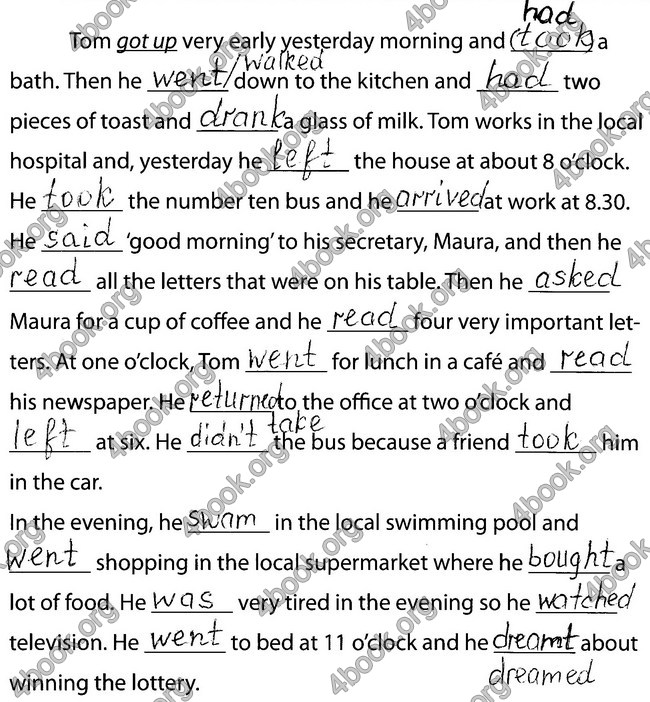 had
Tom got up very early yesterday morning and (took) a
bath. Then he went/walked down to the kitchen and had two
pieces of toast and drank a glass of milk. Tom works in the local
hospital and, yesterday he left the house at about 8 o'clock.
He took the number ten bus and he arrived at work at 8.30.
He said 'good morning' to his secretary, Maura, and then he
read all the letters that were on his table. Then he asked
Maura for a cup of coffee and he read four very important let-
ters. At one o'clock, Tom went for lunch in a café and read
his newspaper. He returned to the office at two o'clock and
left at six. He didn't take the bus because a friend took him
in the car.
In the evening, he swam in the local swimming pool and
went shopping in the local supermarket where he bought a
lot of food. He was very tired in the evening so he watched
television. He went to bed at 11 o'clock and he dreamt about
dreamed
winning the lottery.
4book.org